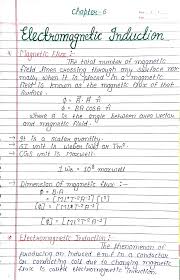 Chapter-6
Electromagnetic Induction
* Magnetic Flux :-
The total number of magnetic
field lines crossing through any surface nor-
mally when it is placed in a magnetic
field is known as the magnetic flux of that
surface.
ϕ = B⃗ . A⃗
ϕ = BA cos θ
where θ is the angle between area vector
and magnetic field.
→ It is a scalar quantity.
→ SI unit is weber (Wb) or Tm²
→ CGS unit is Maxwell.
1 Wb = 10⁸ maxwell
→ Dimension of magnetic flux :-
ϕ = B.A
= [M L⁰ T⁻² A⁻¹] [L²]
[ϕ] = [M L² T⁻² A⁻¹]
* Electromagnetic Induction :-
The phenomenon of
producing an induced e.m.f in a conductor
or conducting coil due to changing magnetic
flux is called electromagnetic induction.